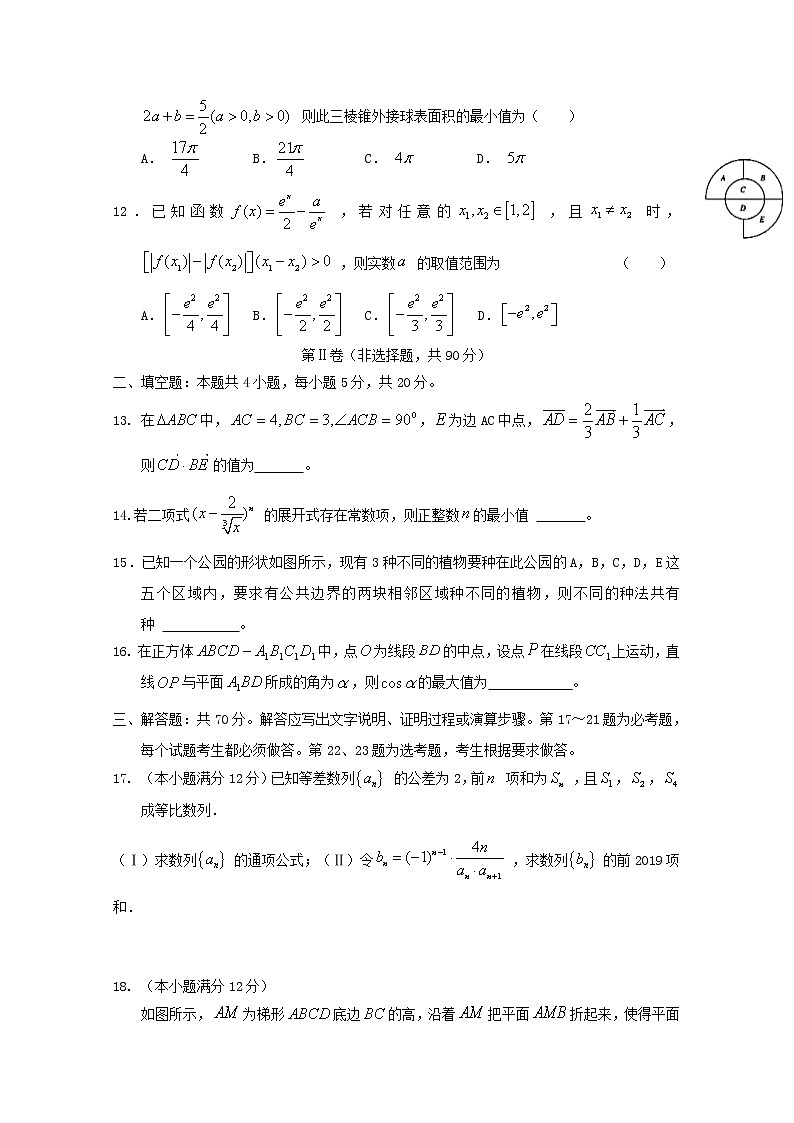 2a + b = 5/2 (a > 0, b > 0) 则此三棱锥外接球表面积的最小值为( )
A. 17π/4 B. 21π/4 C. 4π D. 5π
A B C D E
12.已知函数 f(x) = e^x/2 − a/e^x ,若对任意的 x₁, x₂ ∈ [1,2] ,且 x₁ ≠ x₂ 时,
[|f(x₁)| − |f(x₂)|](x₁ − x₂) > 0 ,则实数 a 的取值范围为 ( )
A. [−e²/4, e²/4] B. [−e²/2, e²/2] C. [−e²/3, e²/3] D. [−e², e²]
第Ⅱ卷(非选择题,共90分)
二、填空题:本题共4小题,每小题5分,共20分。
13. 在ΔABC中, AC = 4, BC = 3, ∠ACB = 90⁰, E为边AC中点, AD = 2/3 AB + 1/3 AC ,
则CD · BE 的值为_______。
14.若二项式 (x − 2/∛x)^n 的展开式存在常数项,则正整数n的最小值 _______。
15.已知一个公园的形状如图所示,现有3种不同的植物要种在此公园的A,B,C,D,E这
五个区域内,要求有公共边界的两块相邻区域种不同的植物,则不同的种法共有
种 ___________。
16. 在正方体 ABCD − A₁B₁C₁D₁中,点O为线段BD的中点,设点P在线段CC₁上运动,直
线OP与平面A₁BD所成的角为α,则cos α的最大值为____________。
三、解答题:共70分。解答应写出文字说明、证明过程或演算步骤。第17~21题为必考题,
每个试题考生都必须做答。第22、23题为选考题,考生根据要求做答。
17. (本小题满分12分)已知等差数列{aₙ} 的公差为2,前n 项和为Sₙ ,且S₁, S₂, S₄
成等比数列.
(Ⅰ)求数列{aₙ} 的通项公式; (Ⅱ)令bₙ = (−1)^(n−1) · 4n/(aₙ · aₙ₊₁) ,求数列{bₙ} 的前2019项
和.
18. (本小题满分12分)
如图所示, AM 为梯形ABCD底边BC的高,沿着AM 把平面AMB折起来,使得平面